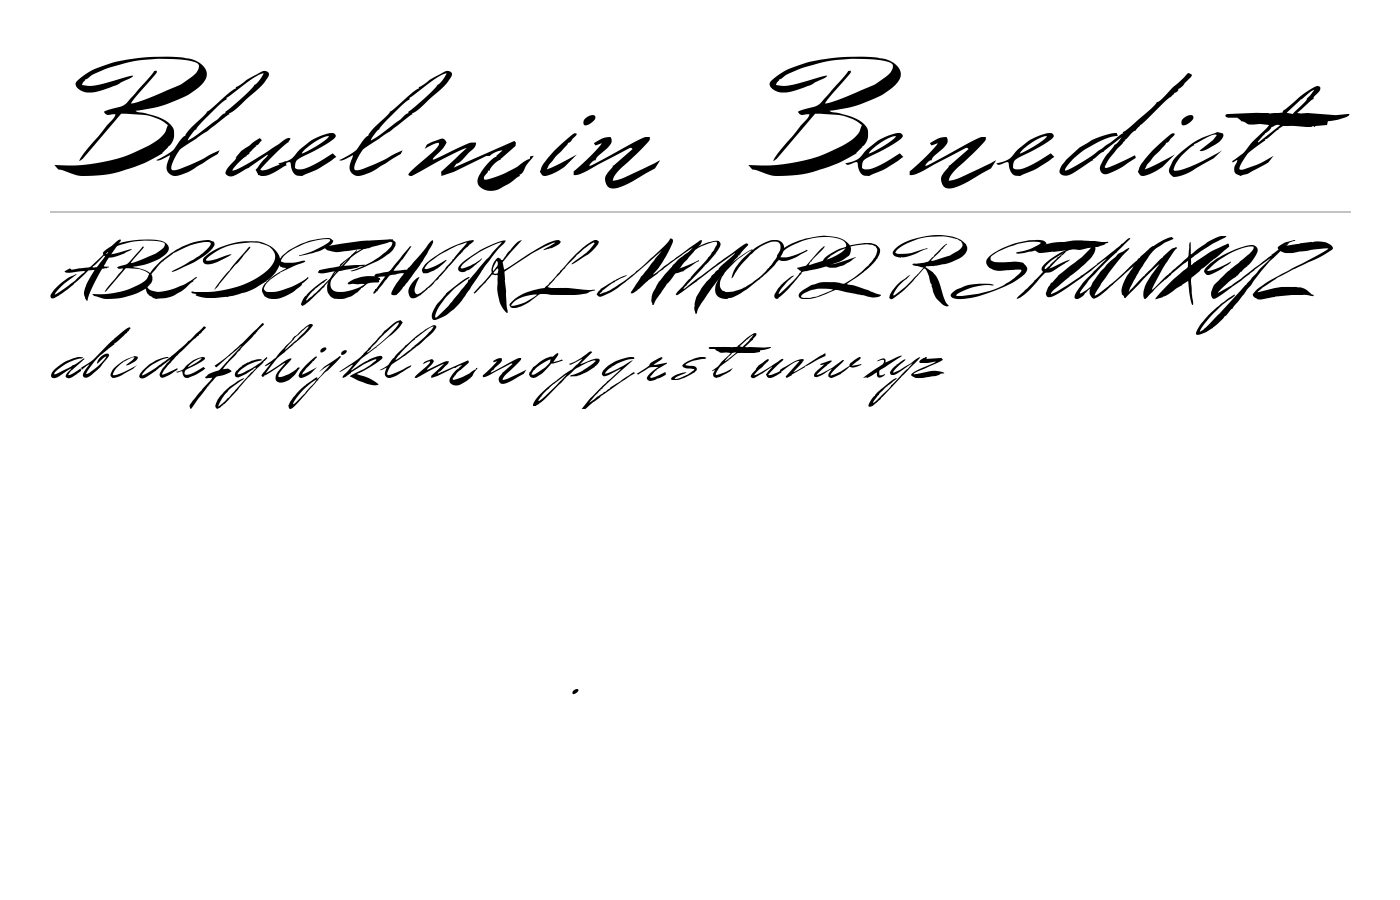 Bluelmin Benedict
ABCDEFGHIJKLMNOPQRSTUVWXYZ
abcdefghijklmnopqrstuvwxyz
.